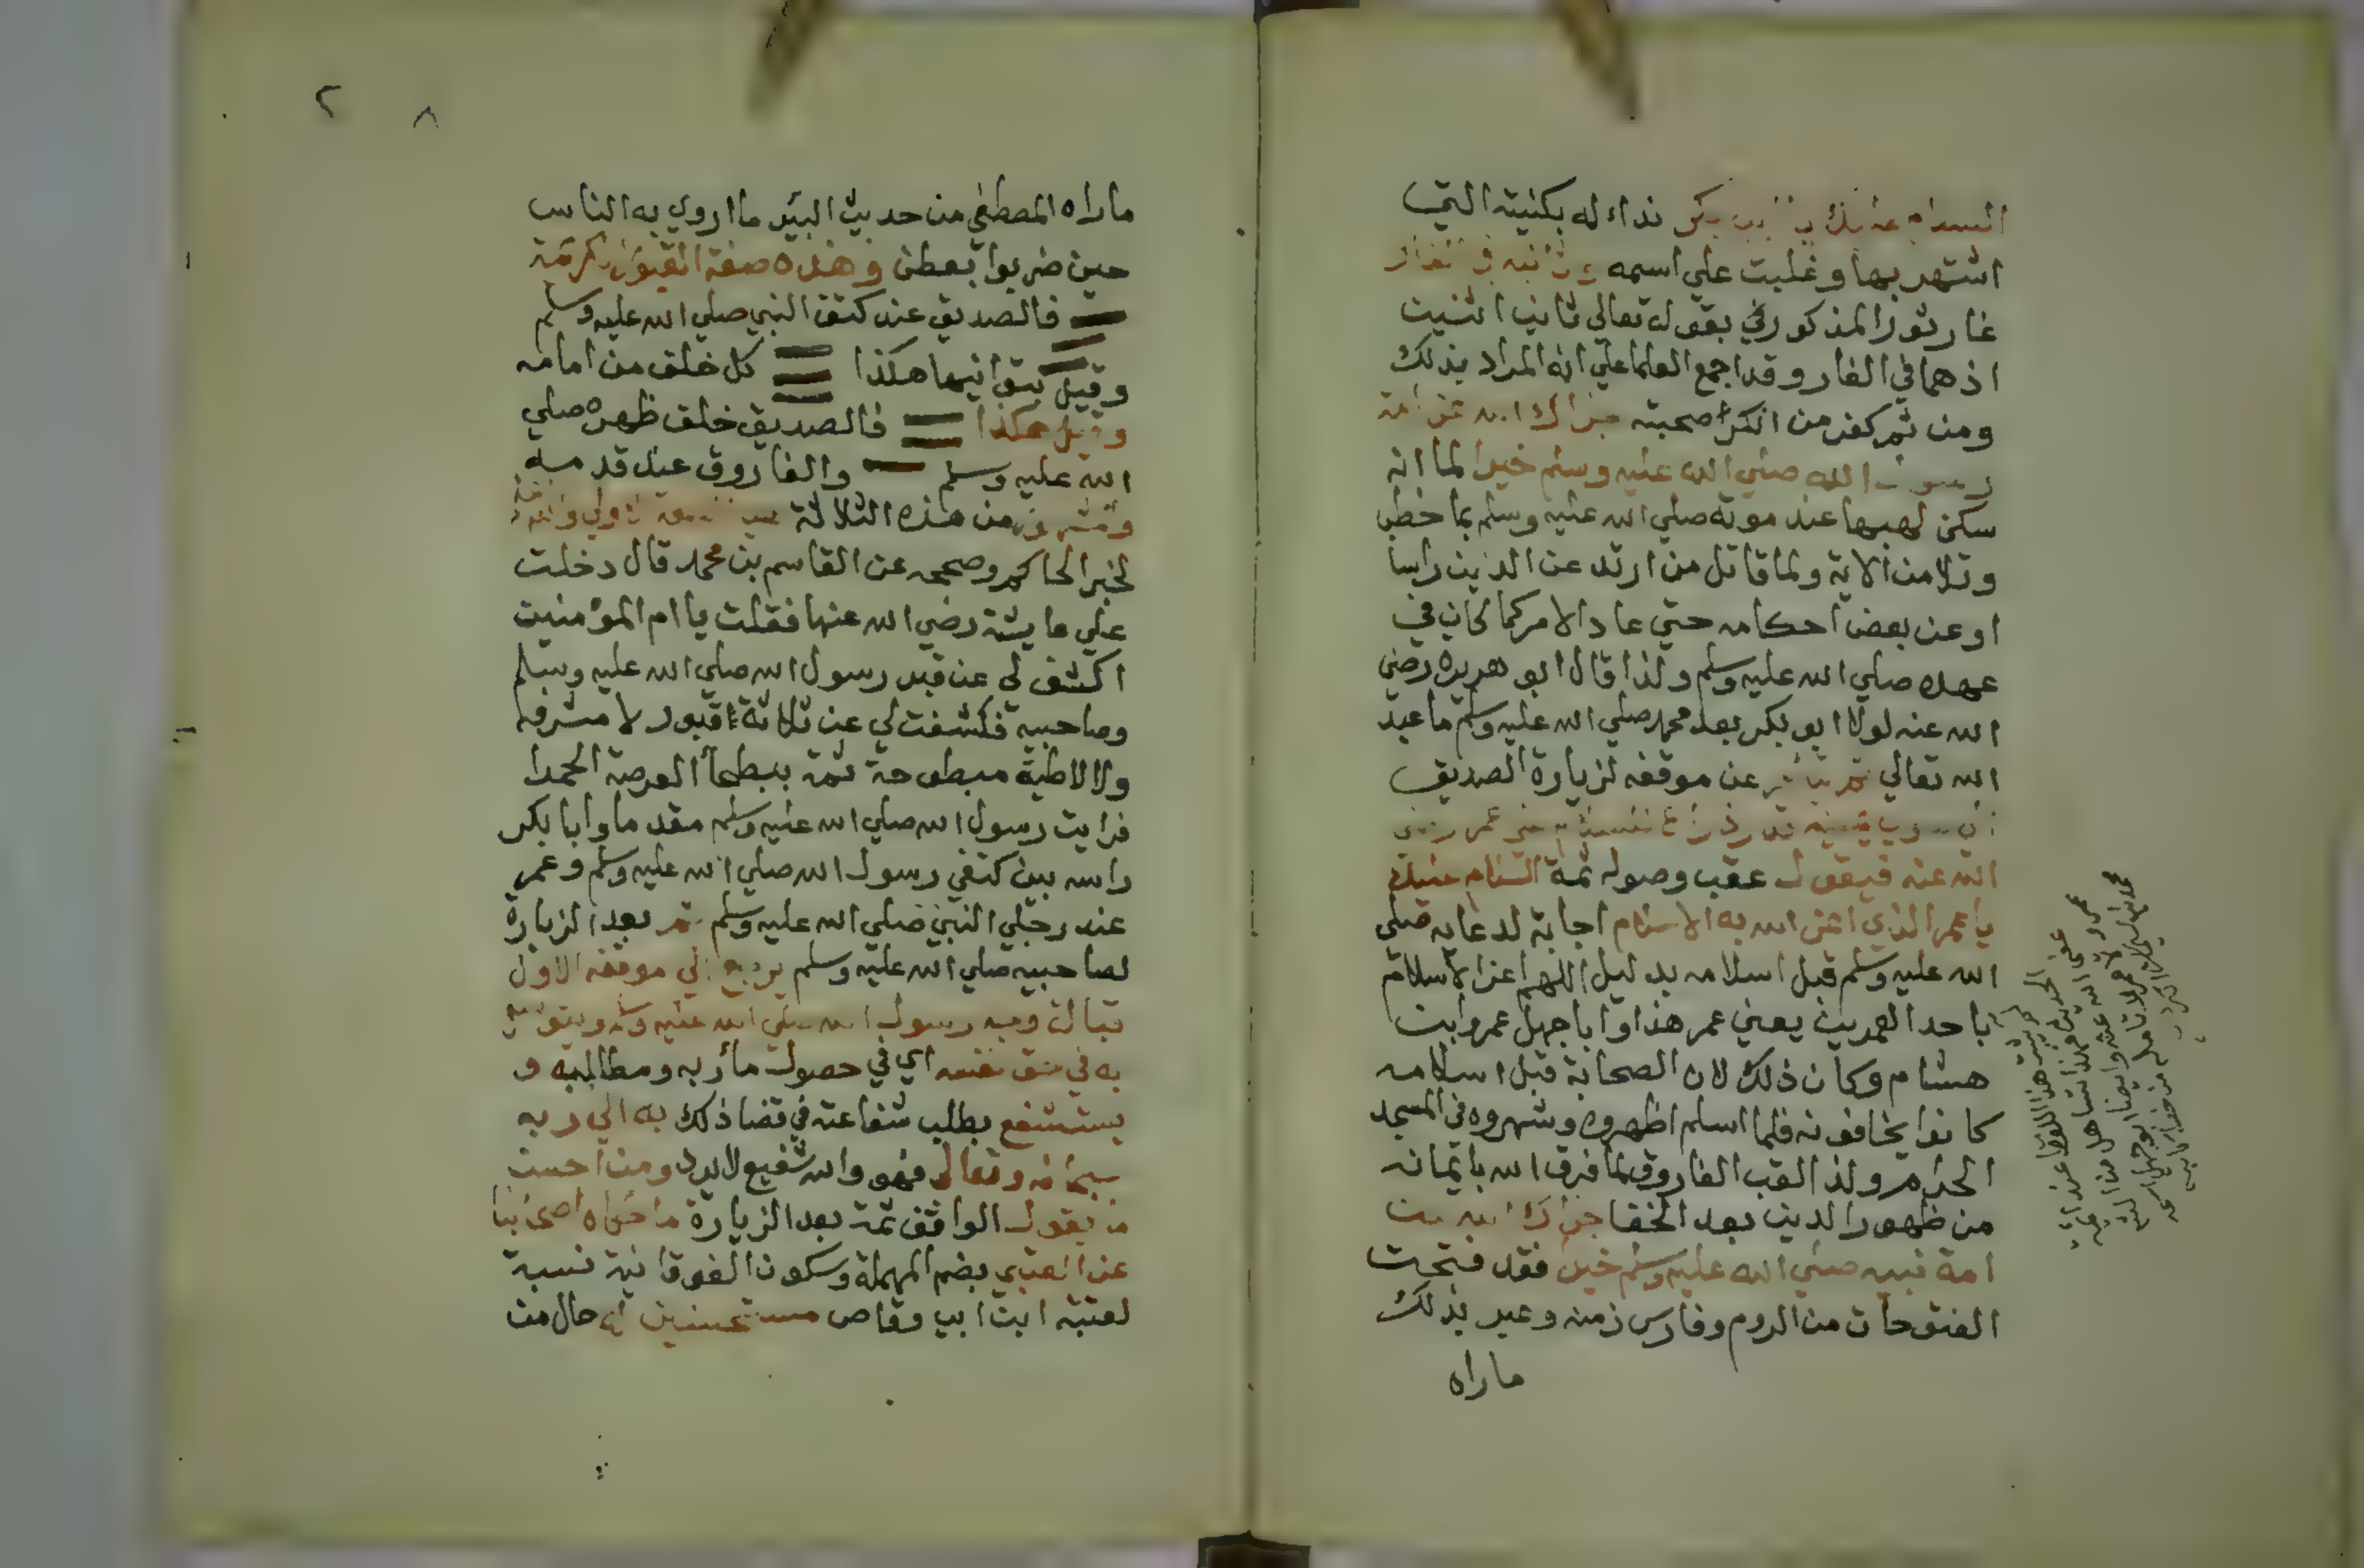 السلام عليك يا ابا بكر نداء له بكنيته التي
اشتهر بها وغلبت علي اسمه وثانيه في الغار
غار ثور المذكور في بقوله تعالي ثاني اثنين
اذ هما في الغار وقد اجمع العلما علي انه المراد بذلك
ومن ثم كفر من انكر صحبته جزاك الله عن امة
رسول الله صلي الله عليه وسلم خيرا لما انه
سكن لهبها عند موته صلي الله عليه وسلم بما خطب
وتلا من الاية ولما قاتل من ارتد عن الدين راسا
او عن بعض احكامه حتي عاد الامر كما كان في
عهده صلي الله عليه وسلم ولذا قال ابو هريرة رضي
الله عنه لولا ابو بكر بعد محمد صلي الله عليه وسلم ما عبد
الله تعالي ثم يتأخر عن موقفه لزيارة الصديق
قدر ذراع للسلام علي عمر رضي
الله عنه فيقول عقب وصوله ثمة السلام عليك
يا عمر الذي اعز الله به الاسلام اجابة لدعايه صلي
الله عليه وسلم قبل اسلامه بدليل اللهم اعز الاسلام
باحد العمرين يعني عمر هذا وابا جهل عمرو ابن
هشام وكان ذلك لان الصحابة قبل اسلامه
كانوا يخافونه فلما اسلم اظهروه وشهروه في المسجد
الحرام ولذا لقب الفاروق لما فرق الله بايمانه
من ظهور الدين بعد الخفا جزاك الله عن
امة نبيه صلي الله عليه وسلم خيرا فقد فتحت
الفتوحات من الروم وفارس زمنه وعبر بذلك
ماراه
لم يثبت هذا اللفظ عند ائمة
الحديث
٢ ٨
ماراه المصطفي من حديث البئر ما اروي به الناس
حين ضربوا بعطن وهذه صفة القبور المكرمة
فالصديق عند كتف النبي صلي الله عليه وسلم
وقيل هكذا كل خلف من امامه
وقيل هكذا فالصديق خلف ظهره صلي
الله عليه وسلم والفاروق عند قدميه
من هذه الثلاثة الاولي
لخبر الحاكم وصححه عن القاسم بن محمد قال دخلت
علي عايشة رضي الله عنها فقلت يا ام المؤمنين
اكشفي لي عن قبر رسول الله صلي الله عليه وسلم
وصاحبيه فكشفت لي عن ثلاثة اقبور لا مشرفة
ولا لاطية مبطوحة ثمة ببطحأ العرصة الحمرا
فرايت رسول الله صلي الله عليه وسلم مقدما وابا بكر
راسه بين كتفي رسول الله صلي الله عليه وسلم وعمر
عند رجلي النبي صلي الله عليه وسلم ثم بعد الزيارة
لصاحبيه صلي الله عليه وسلم يرجع الي موقفه الاول
قبالة وجه رسول الله صلي الله عليه وسلم ويتوسل
به في حق نفسه اي في حصول مأربه ومطالبه و
يستشفع بطلب شفاعته في قضا ذلك به الي ربه
سبحانه وتعالي فهو والله شفيع لا يرد ومن احسن
ما يقول الواقف ثمة بعد الزيارة ما حكاه اصحابنا
عن العتبي بضم المهملة وسكون الفوقانية نسبة
لعتبة ابن ابي وقاص مستحسنين له حال من